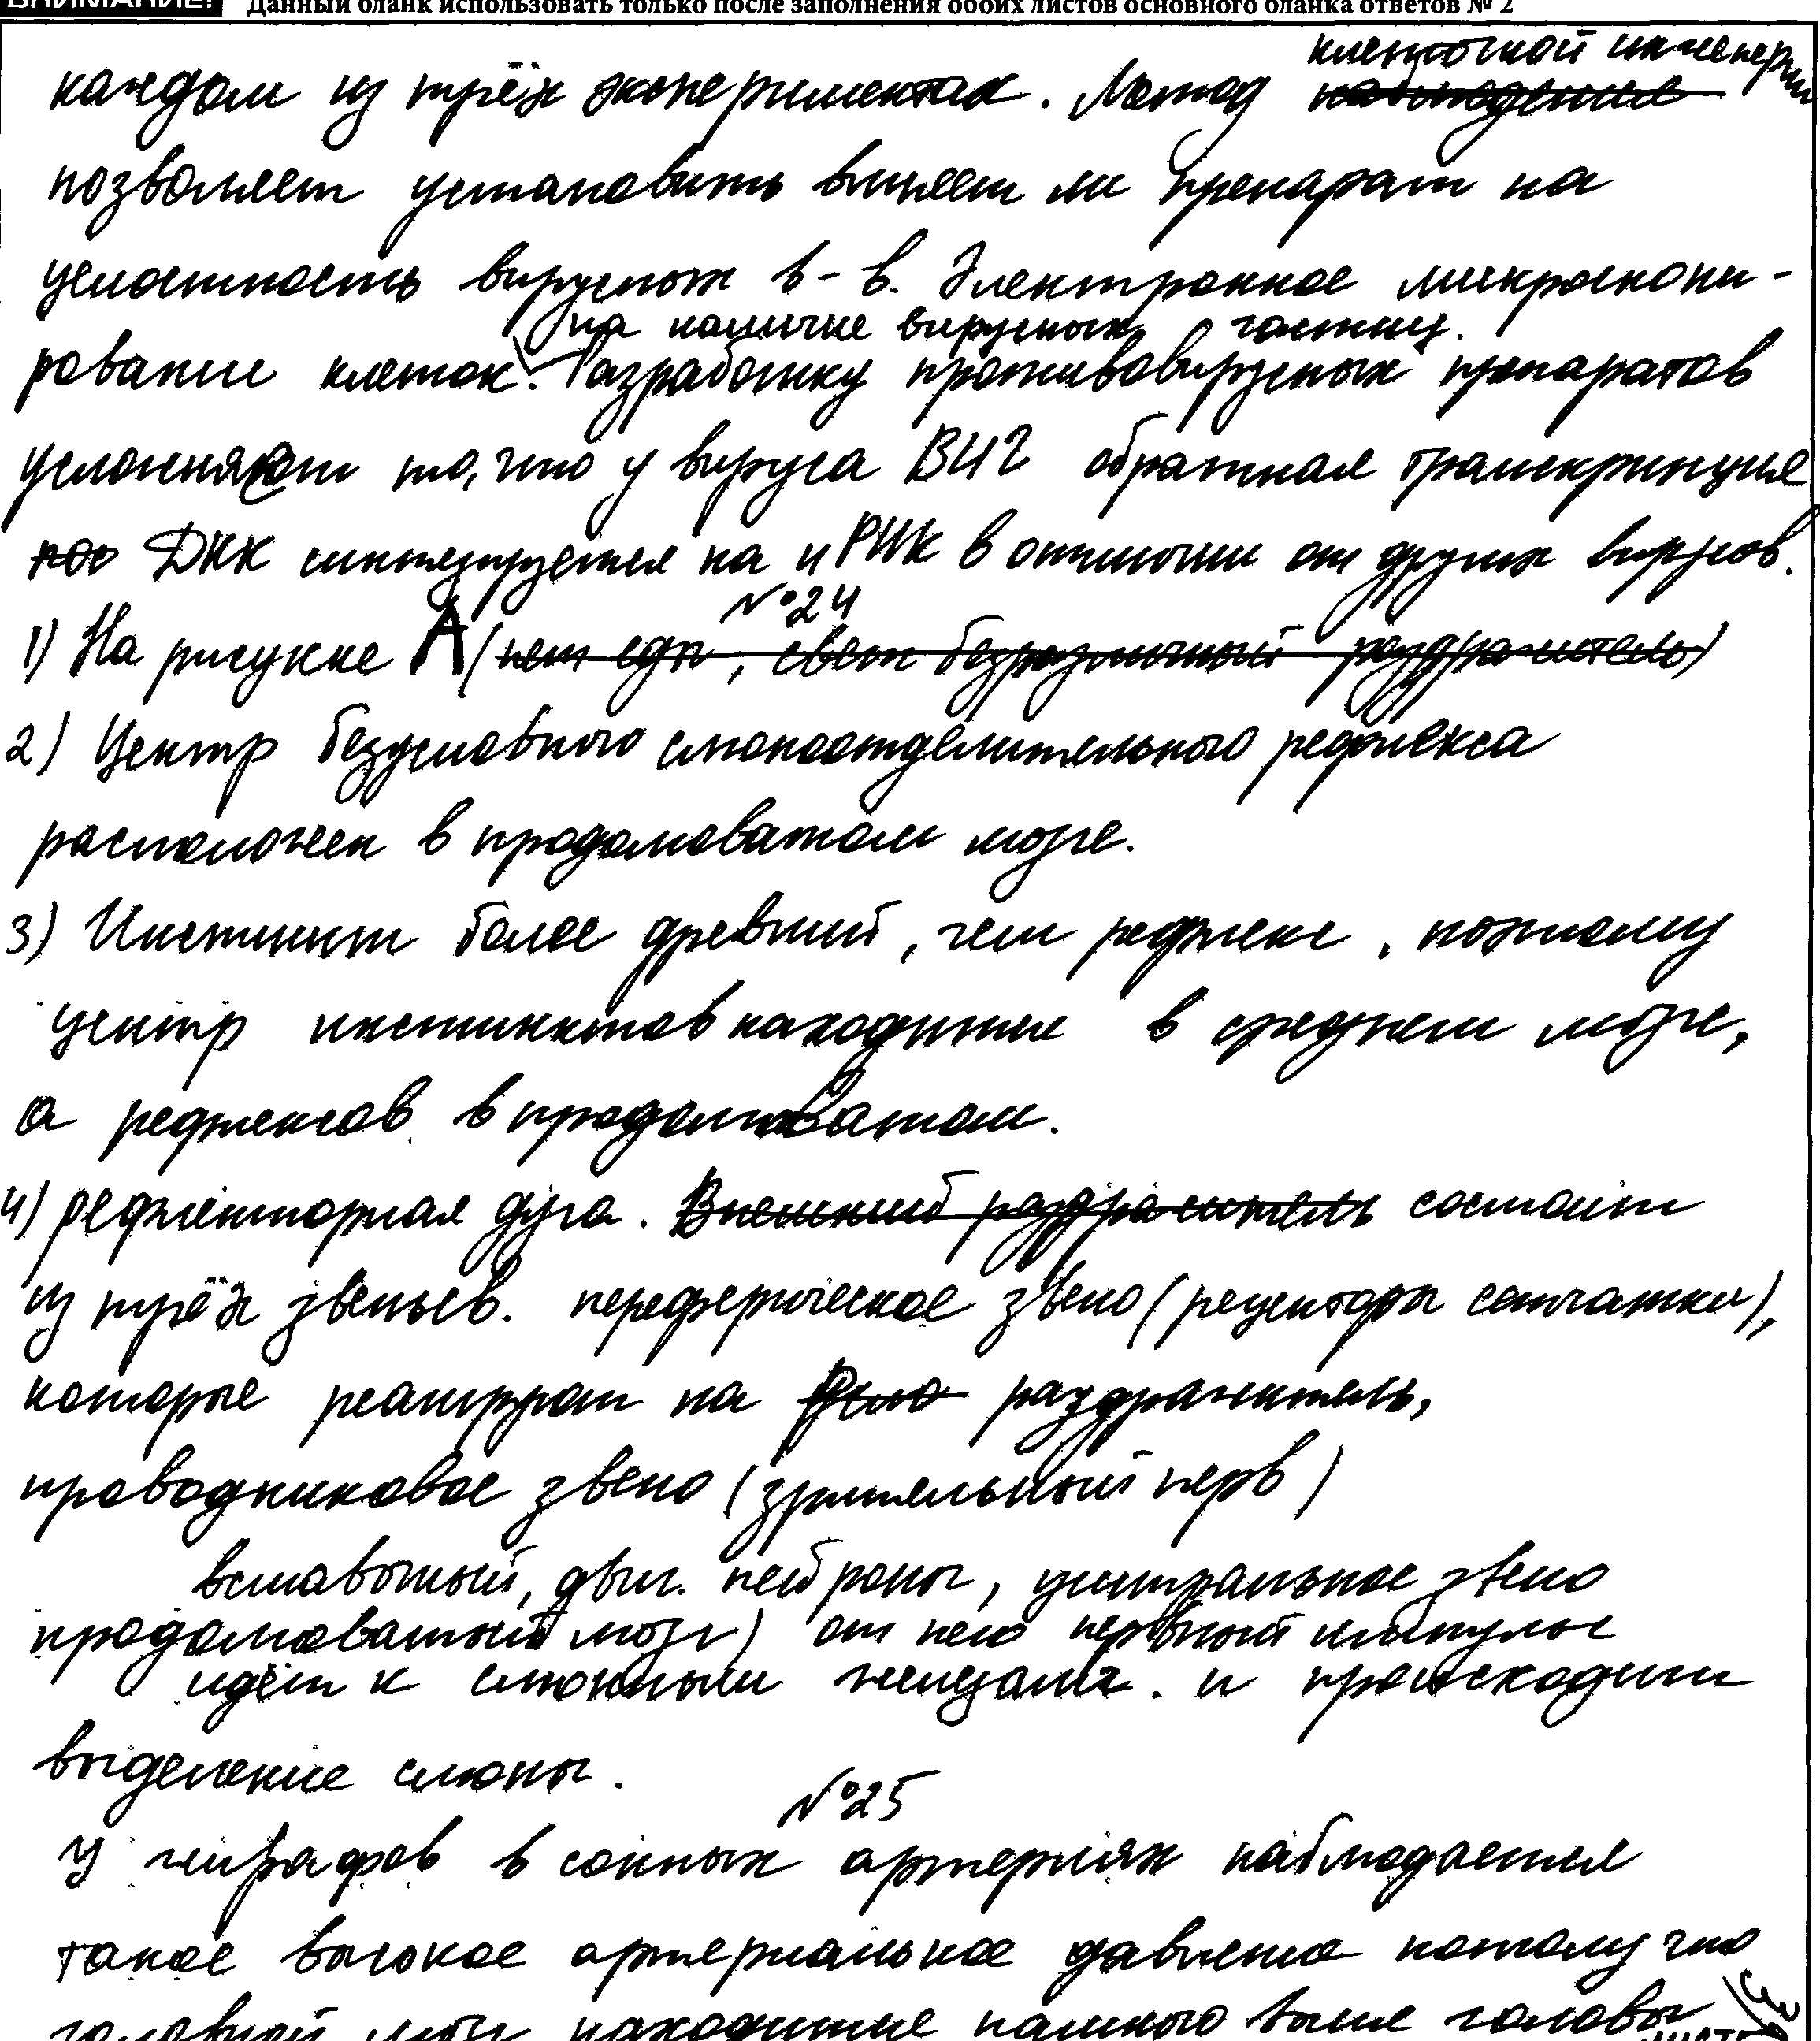 ВНИМАНИЕ! Данный бланк использовать только после заполнения обоих листов основного бланка ответов № 2
клеточной инженерии
каждом из трёх экспериментах. Метод наблюдения
позволяет установить влияет ли препарат на
целостность вирусных в-в. Электронное микроскопи-
на наличие вирусных частиц.
рование клеток. Разработку противовирусных препаратов
усложняют то, что у вируса ВИЧ обратная транскрипция
ДНК синтезируется на иРНК в отличии от других вирусов.
№24
1) На рисунке А (нет еды, свет безразличный раздражитель)
2) Центр безусловного слюноотделительного рефлекса
расположен в продолговатом мозге.
3) Инстинкт более древний, чем рефлекс, поэтому
центр инстинктов находится в среднем мозге,
а рефлексов в продолговатом.
4) рефлекторная дуга. Внешний раздражитель состоит
из трёх звеньев. переферическое звено (рецепторы сетчатки),
которые реагируют на раздражитель,
проводниковое звено (зрительный нерв)
вставочный, двиг. нейроны, центральное звено
продолговатый мозг) от него нервный импульс
идёт к слюнным железам. и происходит
выделение слюны.
№25
У жирафов в сонных артериях наблюдается
такое высокое артериальное давление потому что
головной мозг находится намного выше головы